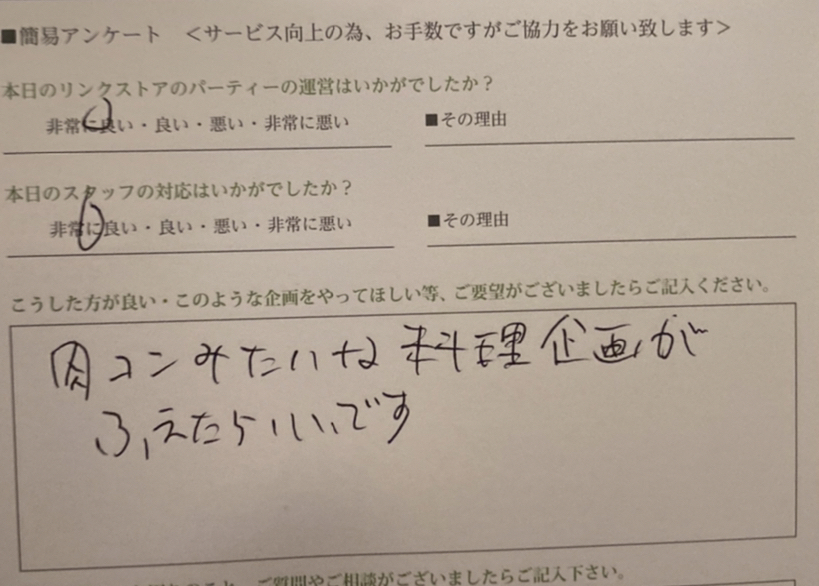 ■簡易アンケート ＜サービス向上の為、お手数ですがご協力をお願い致します＞
本日のリンクストアのパーティーの運営はいかがでしたか？
非常に良い・良い・悪い・非常に悪い ■その理由
本日のスタッフの対応はいかがでしたか？
非常に良い・良い・悪い・非常に悪い ■その理由
こうした方が良い・このような企画をやってほしい等、ご要望がございましたらご記入ください。
肉コンみたいな料理企画が
ふえたらいいです
ご質問やご相談がございましたらご記入下さい。